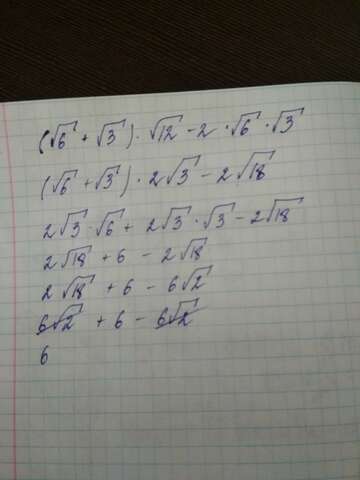 (√6 + √3) · √12 - 2 · √6 · √3
(√6 + √3) · 2√3 - 2√18
2√3 · √6 + 2√3 · √3 - 2√18
2√18 + 6 - 2√18
2√18 + 6 - 6√2
6√2 + 6 - 6√2
6